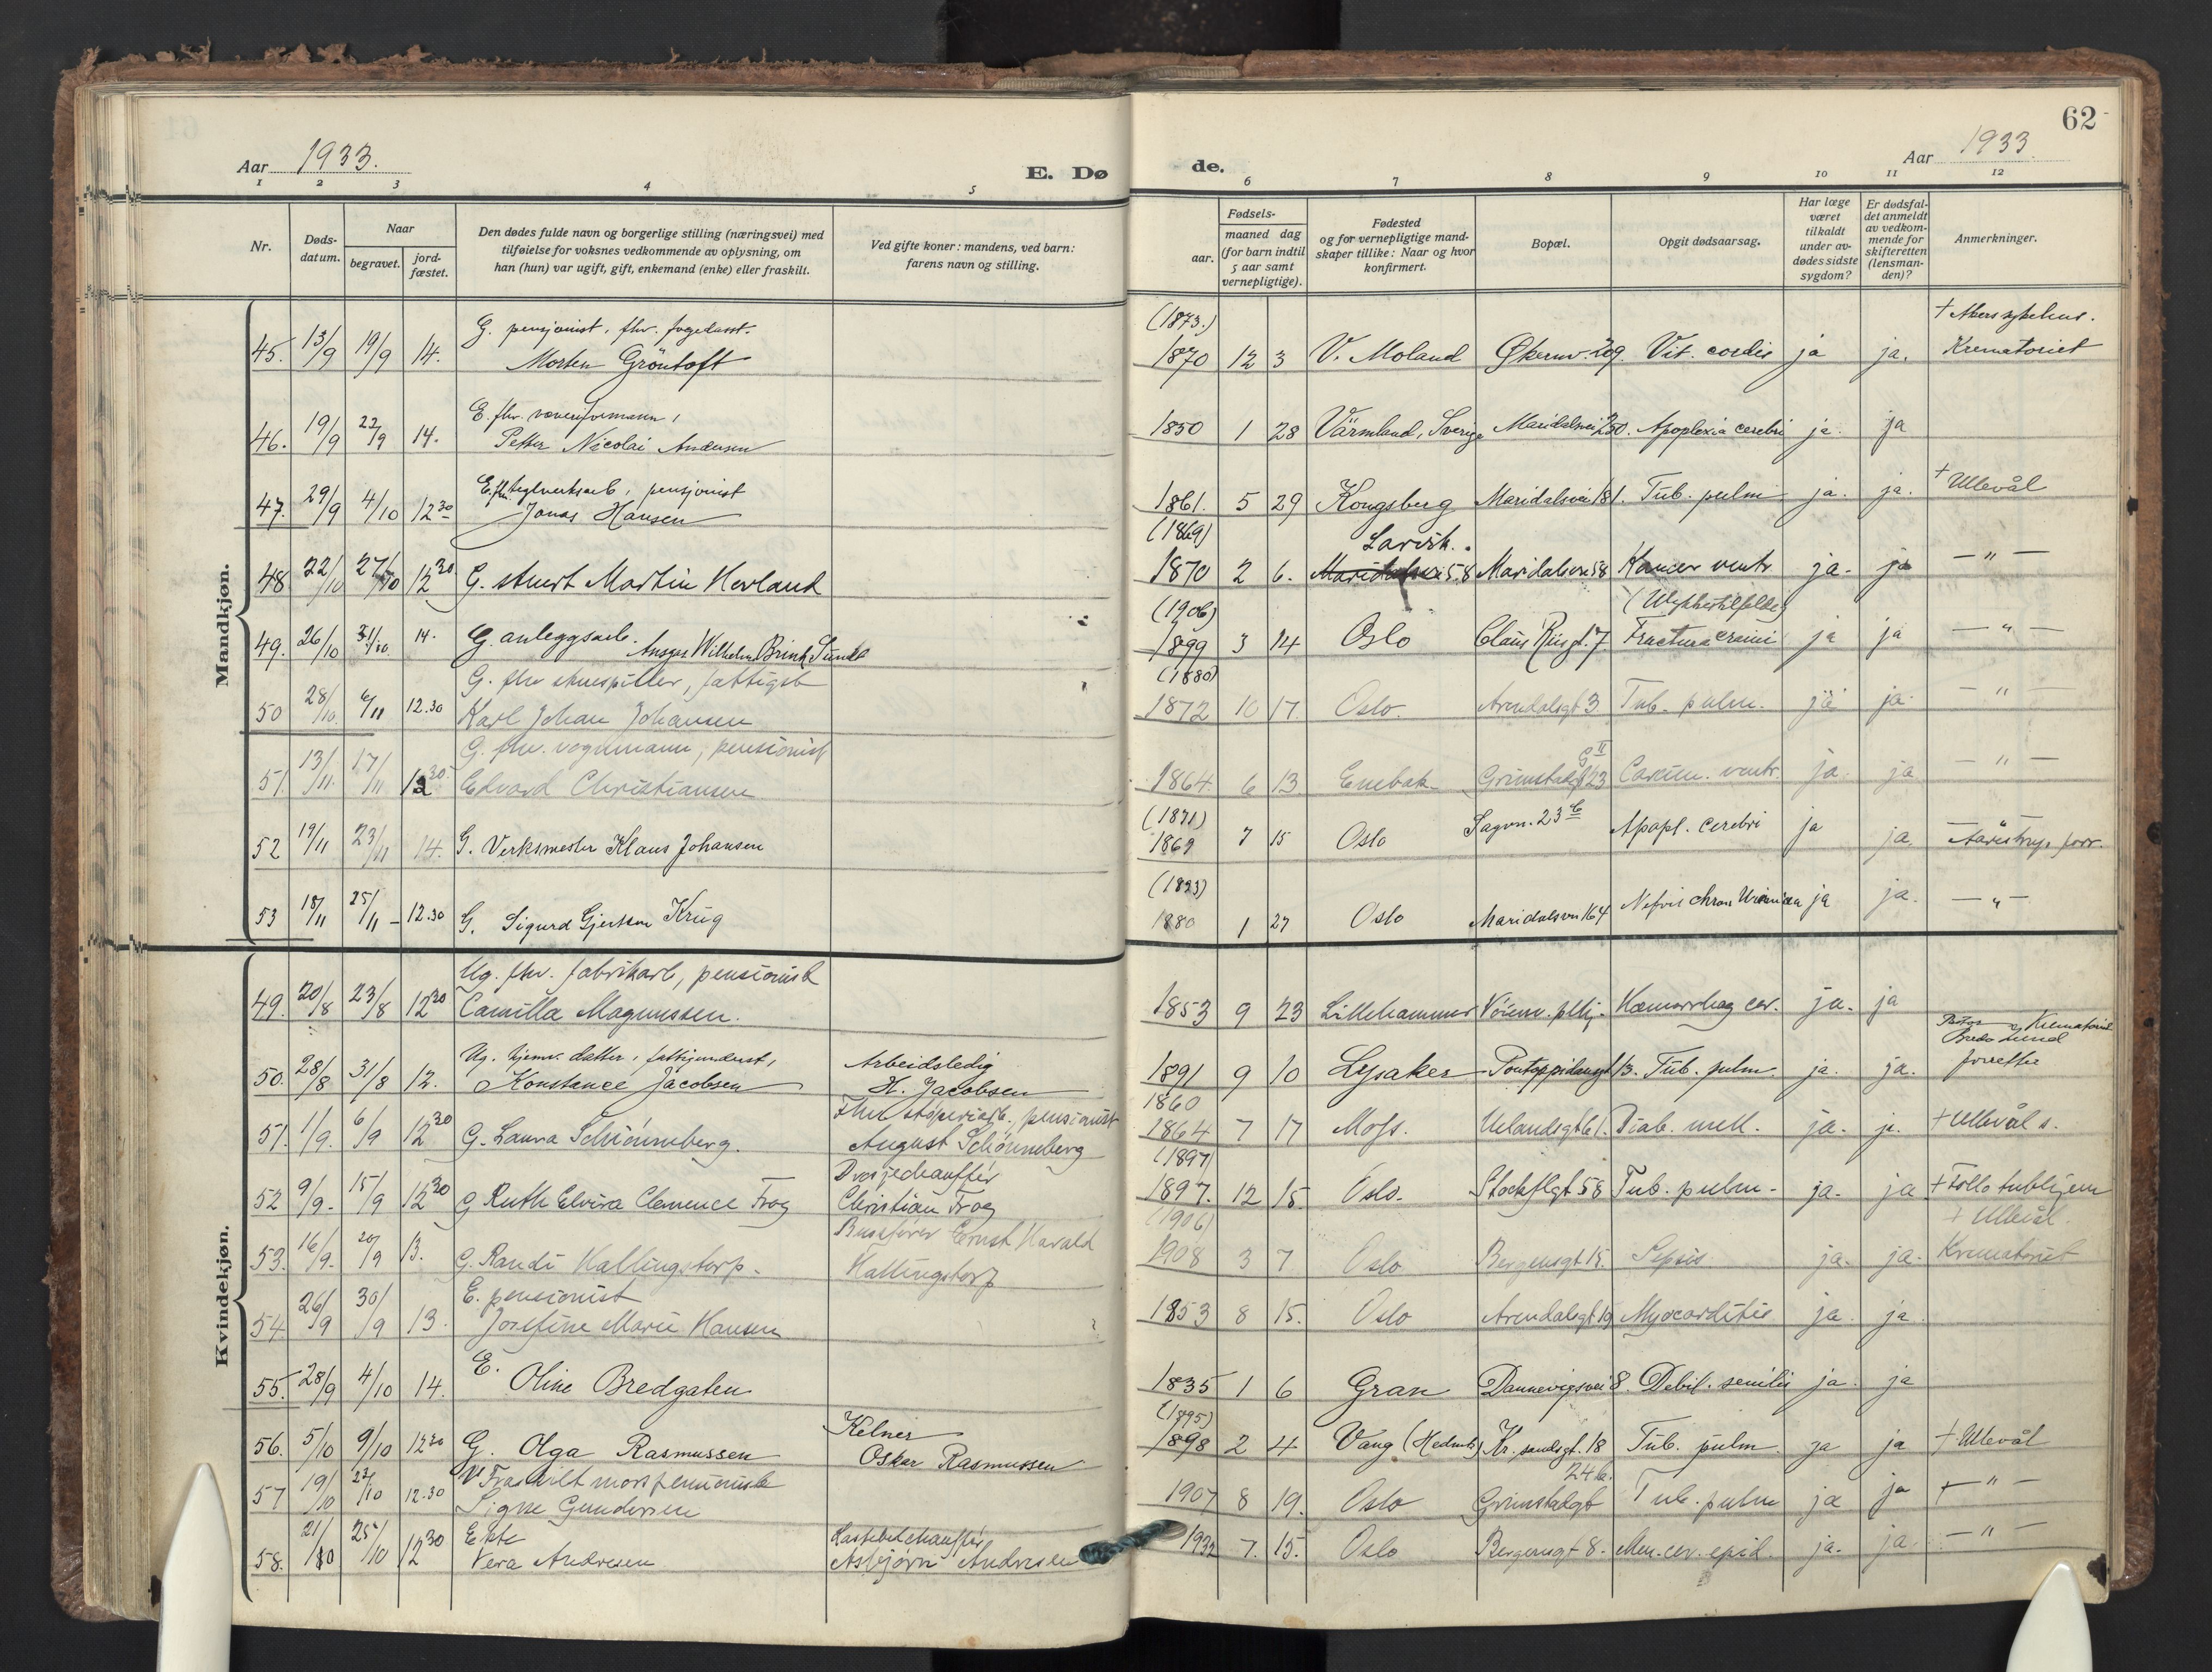 62
Aar 1933. E. Dø de. Aar 1933
1 2 3 4 5 6 7 8 9 10 11 12
Nr. Døds-datum. Naar begravet. jord-fæstet. Den dødes fulde navn og borgerlige stilling (næringsvei) med tilføielse for voksnes vedkommende av oplysning, om han (hun) var ugift, gift, enkemand (enke) eller fraskilt. Ved gifte koner: mandens, ved barn: farens navn og stilling. Fødsels- aar. maaned dag (for barn indtil 5 aar samt vernepligtige). Fødested og for vernepligtige mand-skaper tillike: Naar og hvor konfirmert. Bopæl. Opgit dødsaarsag. Har læge været tilkaldt under av-dødes sidste sygdom? Er dødsfal-det anmeldt av vedkom-mende for skifteretten (lensman-den)? Anmerkninger.
Mandkjøn.
G. pensjonist, fhv. fogedasst. (1873.) + Akers sykehus.
45. 13/9 19/9 14. Morten Gröntoft 1870 12 3 V. Moland Økernv. 209. Vit. cordis ja ja. Krematoriet
E. fhv. væveriformann,
46. 19/9 22/9 14. Petter Nicolai Andersen 1850 1 28 Värmland, Sverige Maridalsvei 230. Apoplexia cerebri ja. ja
E. fhv. teglverksarb, pensjonist
47. 29/9 4/10 12 30 Jonas Hansen 1861. 5 29 Kongsberg Maridalsvei 181. Tub. pulm ja. ja. + Ullevål
(1869) Larvik.
48 22/10 27/10 12 30 G. stuert Martin Hovland 1870 2 6. Maridalsvei 58 Maridalsvei 58 Kancer ventr ja. ja — " —
(1906) (Ulykkestilfelde)
49. 26/10 31/10. 14. G. anleggsarb. Ansgar Wilhelm Brink Sundt 1899 3 14 Oslo Claus Riisgt. 7. Fractura cranii ja ja — " —
G. fhv skuespiller, fattigsb (1880)
50 28/10. 6/11 12.30 Karl Johan Johansen 1872 10 17. Oslo. Arendalsgt 3 Tub. pulm. ja ja. — " —
G. fhv. vognmann, pensionist
51. 13/11. 17/11 12 30. Edvard Christiansen 1864. 6 13 Enebak Grimstadgt 23 Carcin. ventr. ja ja — " —
(1871)
52 19/11 23/11 14. G. Verksmester Klaus Johansen 1869 7 15 Oslo Sagvn. 23 Apopl. cerebri ja ja. — " — forr.
(1893)
53 18/11 25/11 — 12.30 G. Sigurd Gjertsen Krug 1880 1 27 Oslo Maridalsvn 164 chron ja ja. — " —
Kvindekjøn.
Ug. fhv. fabrikarb, pensionist
49. 20/8 23/8 12 30 Camilla Magnussen. 1853 9 23 Lillehammer Vöienv. plhj. Hæmorrhag cer. ja. ja
Ug. hjemv. datter, fattigunderst, Arbeidsledig Krematoriet
50. 28/8 31/8 12. Konstance Jacobsen H. Jacobsen 1891 9 10 Lysaker Pontoppidansgt 13. Tub. pulm. ja. ja. Lund forrettet
Fhv støperiarb., pensionist 1860
51. 1/9. 6/9 12 30 G. Laura Schiönneberg. August Schiönneberg 1864 7 17 Moss. Uelandsgt 61. Diab. mell. ja. ja. + Ullevål s.
Drosjechauffør (1897)
52 9/9. 15/9 12 30 G Ruth Elvira Clemence Frog Christian Frog 1897. 12 15 Oslo. Stockflgt 58 Tub. pulm. ja. ja + Follo tubhjem
Ernst Harald (1906) + Ullevål.
53. 16/9. 20/9 13. G. Randi Hallingstorp. Hallingstorp 1908 3 7 Oslo Bergensgt 15. Sepsis ja. ja. Krematoriet
E. pensionist
54 26/9 30/9 13. Josefine Marie Hansen 1853 8 15. Oslo Arendalsgt 19 Myocarditis ja. ja
E.
55. 28/9 4/10 14. Oline Bredgaten 1835 1 6 Gran Dannevigsvei 8. Debil. senilis ja. ja
Kelner (1895)
56. 5/10 9/10 12 30 G. Olga Rasmussen Oskar Rasmussen 1898 2 4 Vang (Hedmk) Kr.sandsgt. 18 Tub. pulm. ja ja + Ullevål
Fraskilt 24 b.
57 19/10 23/10 12.30 Signe Gundersen 1907 8 19. Oslo Grimstadgt Tub. pulm ja ja + " —
Ekte Lastebilchauffør
58. 21/10 25/10 12 30 Vera Andresen Asbjørn Andresen 1932 7. 15. Oslo Bergensgt 8. Men. cer. epid. ja. ja. — " —